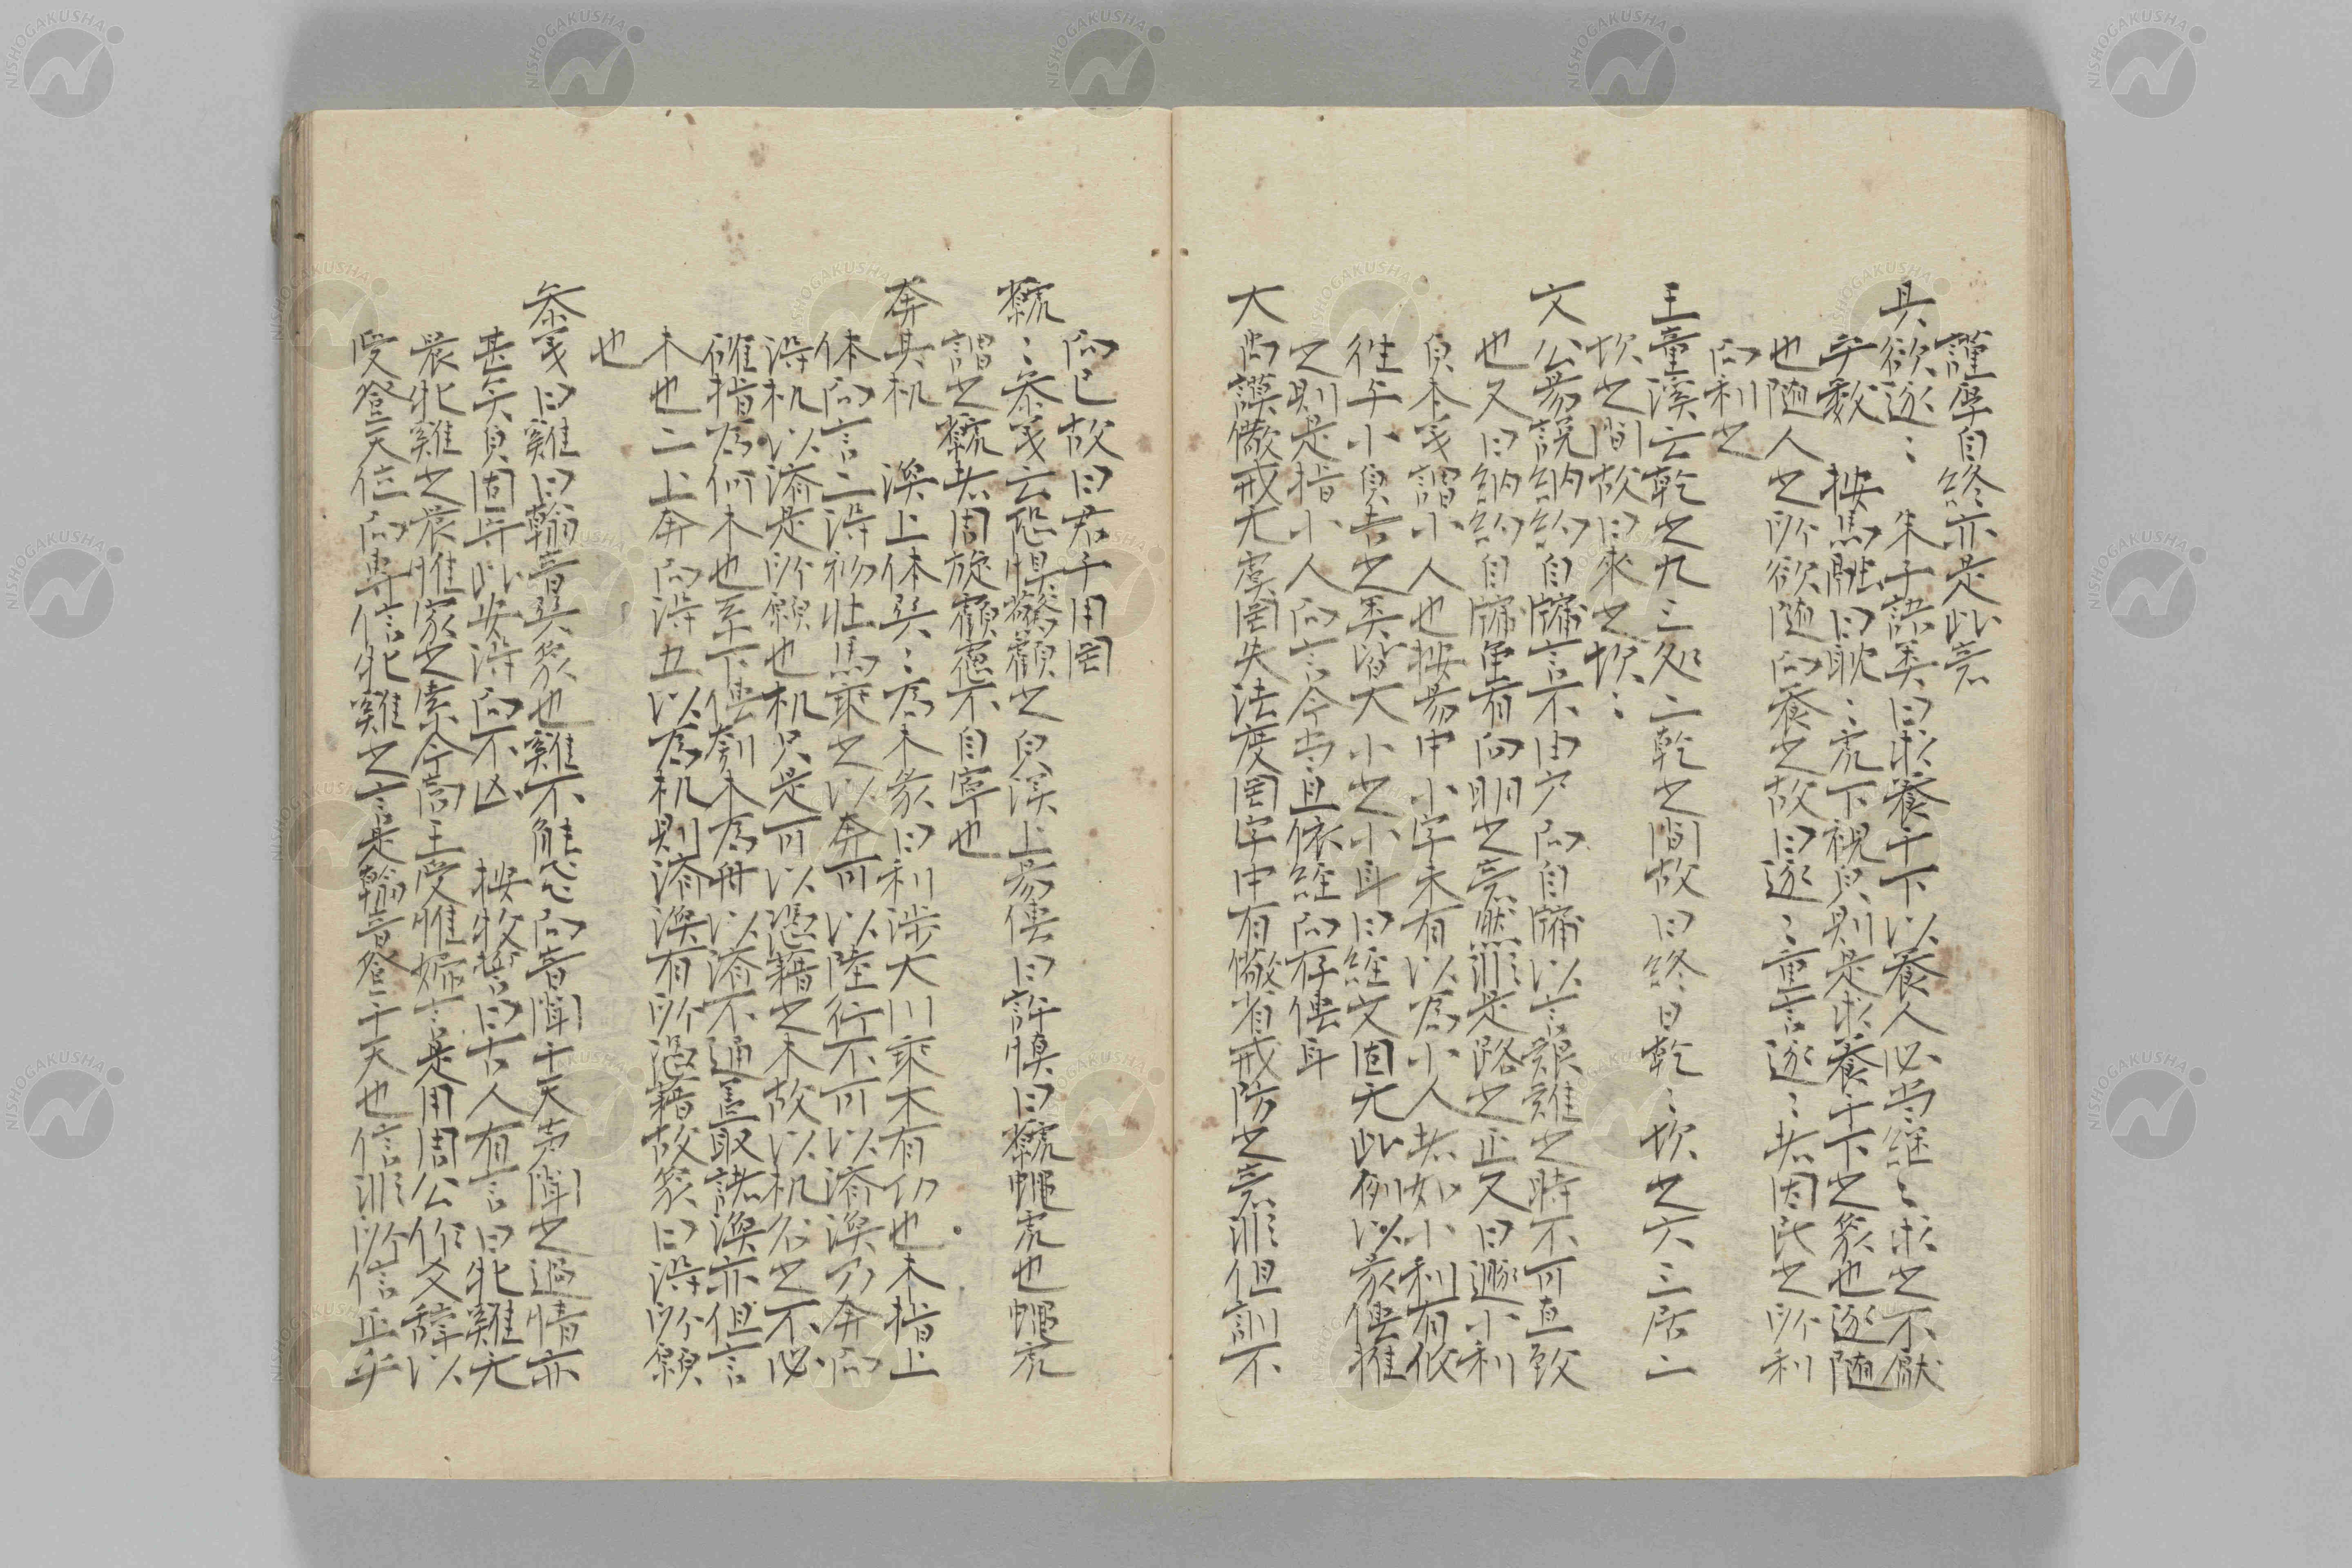 謹厚自終亦是此意
其欲逐〻　朱子語类曰求養于下以養人必当継〻求之不厭
乎数　按馬融曰耽〻虎下視皃則是求養于下之象也逐随
也随人之所欲随而養之故曰逐〻重言逐〻者因民之所利
而利之
王童溪云乾之九三处二乾之間故曰終日乾〻坎之六三居二
坎之間故曰来之坎〻
文公易説納約自牖言不由户而自牖以言艱難之時不可直致
也又曰納約自牖虽有向明之意然非是路之正又曰遯小利
貞本義謂小人也按易中小字未有以為小人者如小利有攸
往与小貞吉之类皆大小之小耳曰経文固无此例以彖傳推
之則是指小人而言今当且依経而存傳耳
大禹謨儆戒无虞罔失法度罔字中有儆省戒防之意非但訓不
而已故曰君子用罔
虩〻蒙義云恐惧驚顧之皃渓上易傳曰許慎曰虩蝿虎也蝿虎
謂之虩者周旋顧慮不自寧也
奔其机　渙上体巽〻為木彖曰利渉大川乘木有功也木指上
体而言二得初壮馬乘之以奔可以陸行不可以済渙乃奔而
得机以済是所願也机只是可以憑藉之木故以机名之不必
確指為何木也系下傳刳木為舟以済不通盖取諸渙亦但言
木也二上奔而得五以為机則済渙有所憑藉故象曰得所願
也
蒙義曰雞曰翰音巽象也雞不能飛而音聞于天声聞之過情亦
甚矣貞固守此安得而不凶　按牧誓曰古人有言曰牝雞无
晨牝雞之晨惟家之索今商王受惟婦言是用周公作爻辞以
受登天位而専信牝雞之言是翰音登于天也信非所信正乎